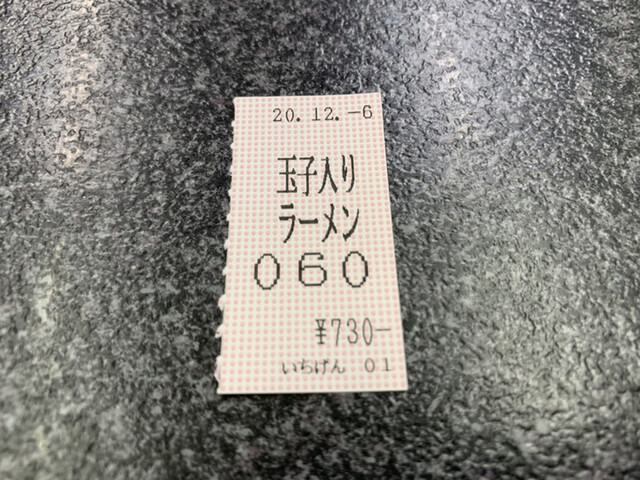 20.12.-6
玉子入り
ラーメン
060
¥730-
いちげん 01